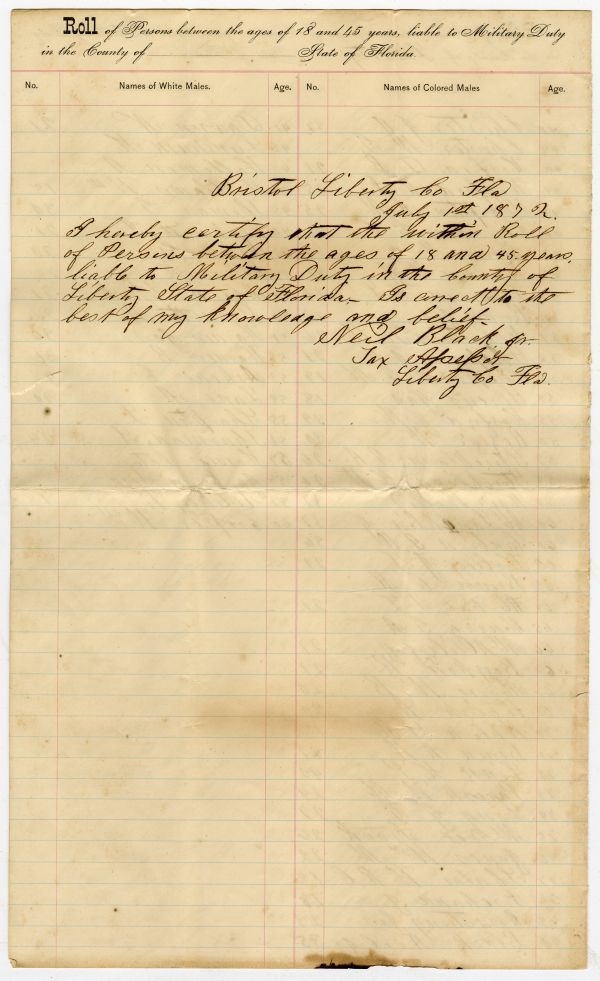 Roll of Persons between the ages of 18 and 45 years, liable to Military Duty
in the County of State of Florida.
No. Names of White Males. Age. No. Names of Colored Males Age.
Bristol Liberty Co Fla
July 1st 1872.
I hereby certify that the within Roll
of Persons between the ages of 18 and 45 years,
liable to Military Duty in the County of
Liberty State of Florida- Is correct to the
best of my knowledge and belief-
Neil Black jr.
Tax Assessor
Liberty Co Fla.